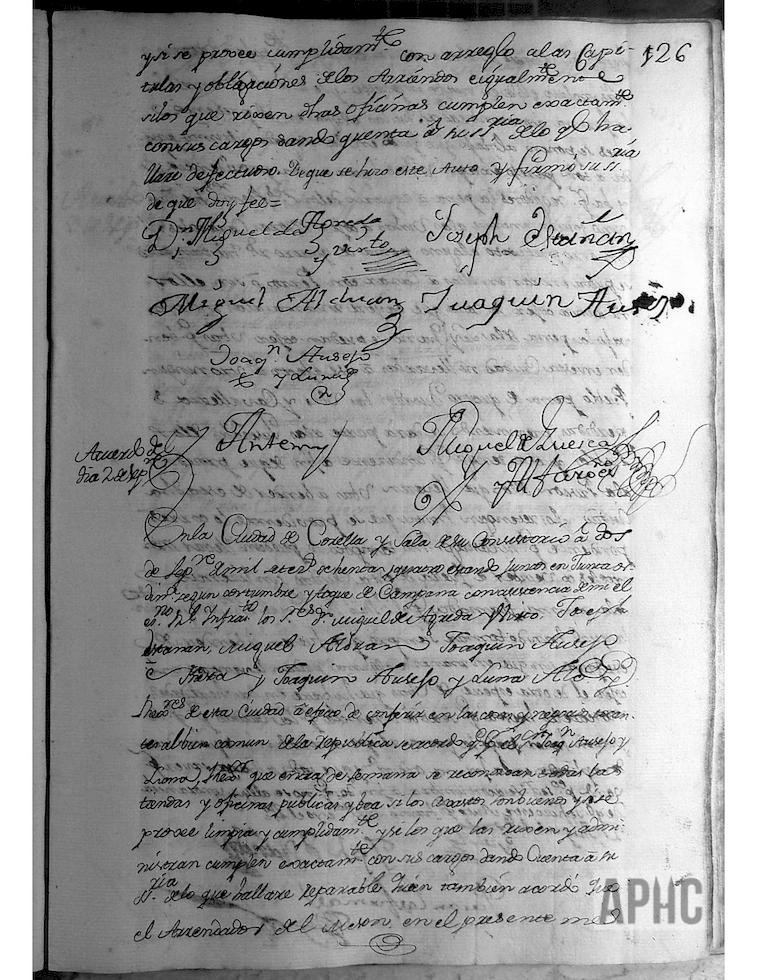 126
y si se provee cumplidam.te con arreglo a las Capi-
tulas y obligaciones de los Arriendos e igualmente
si los que rixen dhas oficinas cumplen exactam.te
con sus cargos dando quenta á su S.ria de lo q.e ha-
llare defectuoso. De que se hizo este Auto y firmó su S.ria
de que doy fee=
D.n Miguel de Agreda
y Virto
Joseph Escanan
Miguel Alduan Juaquin Ausejo
Joaq.n Ausejo
y Luna
Antemy
Miguel de Luesca
y
Acuerdo de
dia 2 de Sep.re
En la Ciudad de Corella y Sala de su Consistorio á dos
de Sep.re de mil setec.s ochenta y quatro estando juntos en Junta or
din.a segun costumbre y toque de Campana con asistencia de mi el
es.no R.l Infrato los S.res D.n Miguel de Agreda y Virto, Joseph
Escanan, Miguel Alduan Joaquin Ausejo
y Joaquin Ausejo y Luna Al.de y
Rexidores de esta Ciudad á efecto de conferir en las cosas y negocios tocan
tes al bien comun de la Republica se acordo q.e el S.r D.n Joaq.n Ausejo y
Luna, que en cada semana se reconozcan todas las
tiendas y oficinas publicas y bea si los avastos son buenos y si se
provee limpia y cumplidam.te y si los que las rixen y admi
nistran cumplen exactam.te con sus cargos dando Cuenta á su
S.ria de lo que hallare reparable. Y bien tambien acordó que
el Arrendador del Meson, en el presente mes
APHC